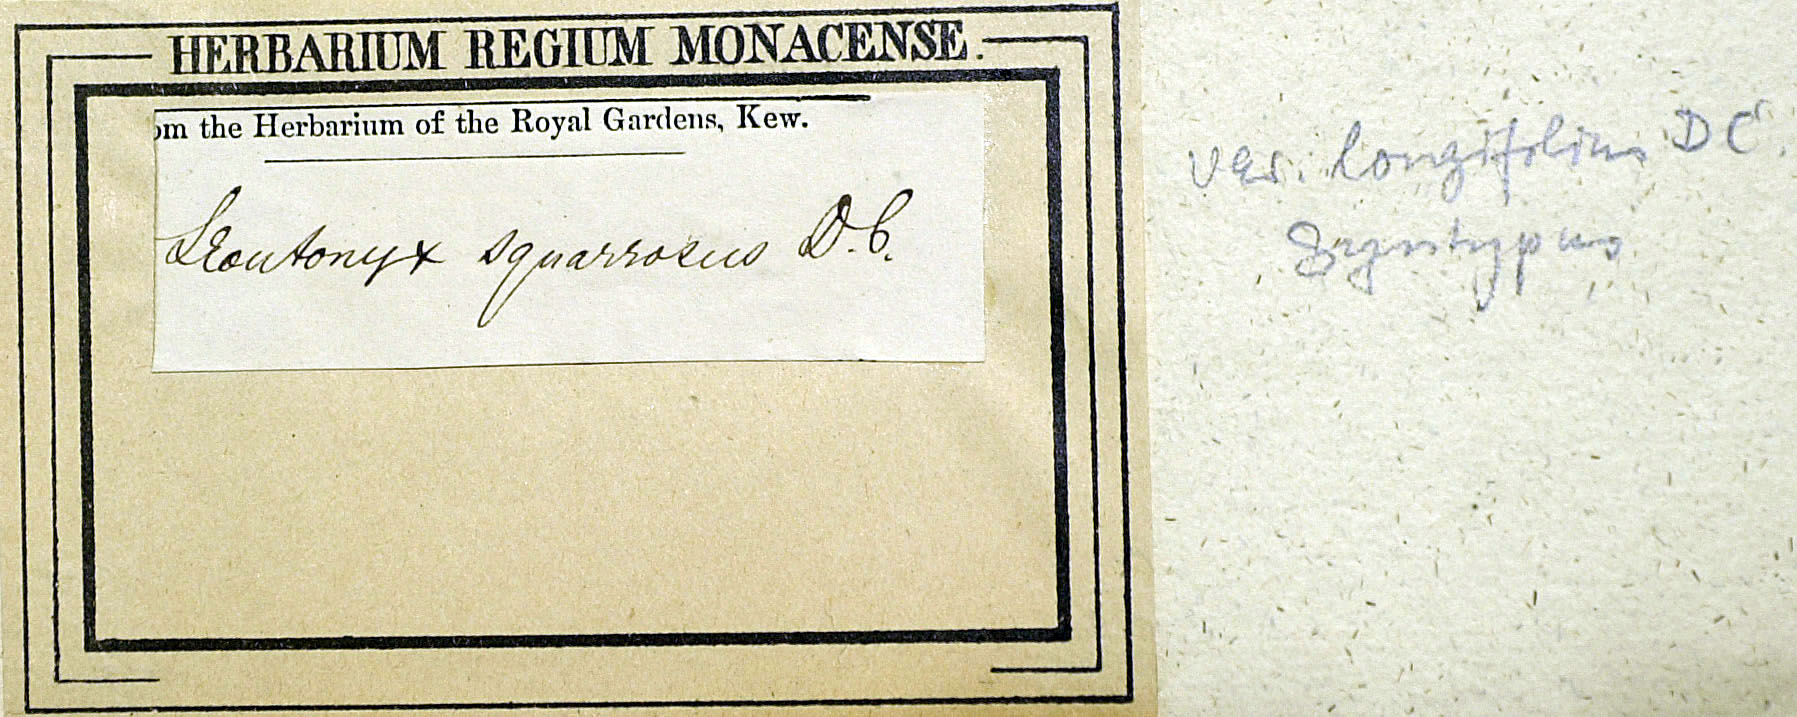 HERBARIUM REGIUM MONACENSE.
om the Herbarium of the Royal Gardens, Kew.
Leontonyx squarrosus D.C.
var. longifolius DC.
Syntypus